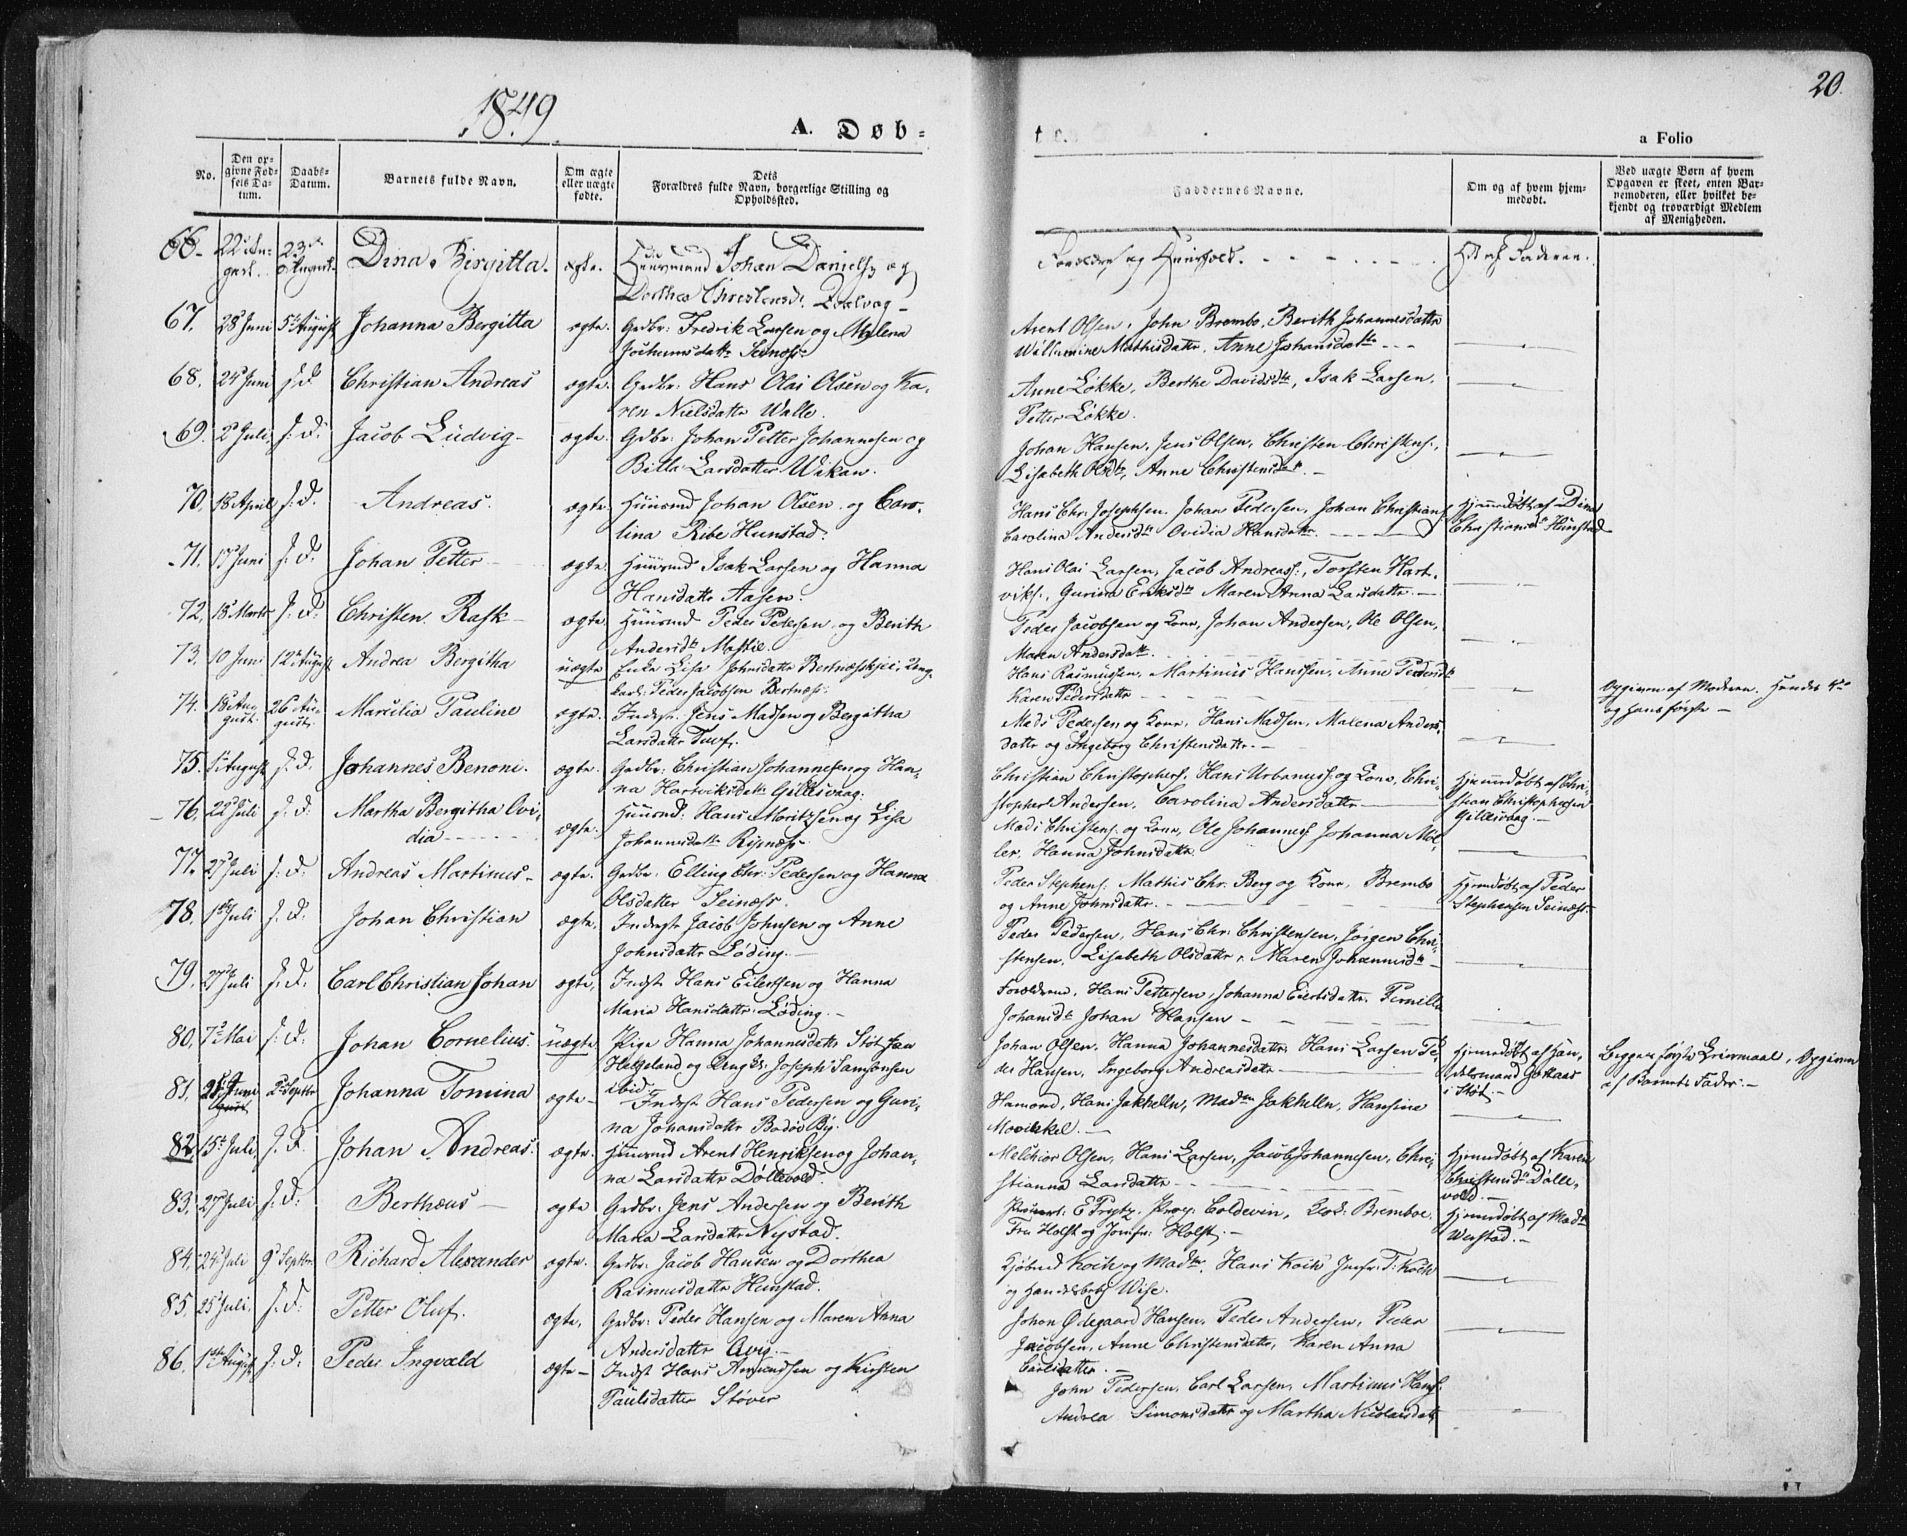 1849
A. Døb-
No.
Den opgivne Fødsels Datum.
Daabs-Datum.
Barnets fulde Navn.
Om ægte eller uægte fødte.
Dets Forældres fulde Navn, borgerlige Stilling og Opholdssted.
66. 22 August. 23 August. Dina Birgitta. ægte. Huusmand Johan Danielss og
Dorthea Christensd.
67. 28 Juni 5te August Johanna Bergitta ægte. Grdbr: Fredrik Larsen og Malena
Jochumsdatter Seinæss
68. 24 Juni s. D. Christian Andreas ægte. Grdbr: Hans Olai Olsen og Ka-
ren Nielsdatter Walle.
69. 2 Juli s. D. Jacob Ludvig ægte. Grdbr: Johan Petter Johannesen og
Larsdatter Wakan.
70. 18 April s. D. Andreas. ægte. Huusmd Johan Olsen og Caro-
lina Ribe Hunstad.
71. 17 Juni s. D. Johan Petter ægte. Huusmd Isak Larsen og Hanna
Hansdatter Aasen.
72. 18 Marts s. D. Christen Rask ægte. Huusmd Peder Pedersen og Berith
Andersdtr
73. 10 Juni 12te August Andrea Bergitha uægte Enke Lisa Johnsdatter
Peder Jacobsen Bertnæss.
74. 18 August. 26 August. Marselia Pauline ægte. Inderst: Jens Madsen og Bergitha
Larsdatter
75. August s. D. Johannes Benoni. ægte. Grdbr: Christian Johannesen og Han-
na Hartviksdtr Gillesvaag.
76. 22 Juli s. D. Martha Bergitha Ovi-
dia ægte. Huusmd: Hans Moritzsen og Lisa
Johannisdatter
77. 27 Juli s. D. Andreas Martinus ægte. Grdbr: Elling Chr: Pedersen og Hanna
Olsdatter Seinæss.
78. 1ste Juli s. D. Johan Christian ægte. Inderst Jacob Johnsen og Anne
Johnsdatter Løding.
79. 27 Juli s. D. Carl Christian Johan ægte. Indst Hans Eilertsen og Hanna
Maria Hansdatter Løding.
80. 7 Mai s. D. Johan Cornelius. uægte. Pige Hanna Johannesdatter Støt
Helgeland og Ungk: Joseph Samsonsen
ibid.
81. Juni 2 Septbr Johanna Tomina ægte Inderst Hans Pedersen og Guri-
na Johansdatter Bodø By.
82. 15 Juli s. D. Johan Andreas. ægte. Huusmd Arent Henriksen og Johan-
na Larsdatter Døllevold.
83. 27 Juli s. D. Berthæus ægte Grdbr: Jens Andersen og Berith
Maria Larsdatter Nystad.
84. 24 Juli 9 Septbr. Richard Alexander ægte. Grdbr: Jacob Hansen og Dorthea
Rasmusdatter Hunstad.
85. 25 Juli. s. D. Petter Oluf. ægte. Grdbr: Peder Hansen og Maren Anna
Andersdatter
86. 1ste August s. D. Peder Ingvald ægte Indst Hans Amundsen og Kirsten
Paulsdatter Støver
20.
te.
a Folio
Faddernes Navne.
Om og af hvem hjemmedøbt.
Ved uægte Børn af hvem Opgaven er skeet, enten Barnemoderen, eller hvilket bekjendt og troværdigt Medlem af Menigheden.
Forældre og Huusfolk. Hdt af Faderen.
Arent Olsen, John Brembo, Berith Johannesdatter
Wilhemine Mathisdatter, Anne Johansdatter
Anne Løkke, Berthe Davidsdtr, Isak Larsen,
Petter Løkke.
Johan Hansen, Jens Olsen, Christen Christens.,
Lisabeth Olsdtr, Anne Christensdtr.
Hans Chr: Josephsen. Johan Pedersen, Johan Christians. Hjemmedøbt af Dina
Carolina Andersdtr Ovidia Hansdatter. Christiansd Hunstad
Hans Olai Larsen, Jacob Andreass:, Torsten Hart-
viks., Gurina Eriksdtr Maren Anna Larsdatter.
Peder Jacobsen og Kone, Johan Andersen, Ole Olsen,
Maren Andersdatter.
Hans Rasmussen, Martinus Hanssen, Anne Pedersdtr
Karen Pedersdatter Opgiven af Moderen. Hendes 4de
og hans første
Mads Pedersen og Kone, Hans Madsen, Malena Anders-
datter og Ingeborg Christensdatter.
Christian Christophers., Hans Urbanuss. og Kone, Chri- Hjemmedøbt af Chri-
stopher Andersen, Carolina Andersdatter stian Christophersen
Gildesvaag.
Mads Christens. og Kone, Ole Johanness, Johanna Møl-
ler, Hanna Johnsdatter.
Peder Stephens. Mathis Chr. Berg og Kone, Brembo Hjemmedøbt af Peder
og Anne Johnsdatter. Stephensen Seinæss.
Peder Pedersen, Hans Chr: Christensen, Jørgen Chri-
stensen, Lisabeth Olsdatter, Maren Johannisdtr
Forældrene, Hans Pettersen, Johanna Eiertsdatter. Pernille
Johansdtr Johan Hansen
Johan Olsen, Hanna Johannesdatter Hans Larsen Pe- Hjemmedøbt af Han- Begges første Leiermaal. Opgiven
der Hansen, Ingeborg Andreasdatter delsmand af Barnets Fader.
i Støt.
Hamond, Hans Jakhelln, Madm Jakhelln, Hansine
Melchior Olsen, Hans Larsen, Jacob Johannesen, Chri- Hjemmedøbt af Karen
stianna Larsdatter Christensdtr Dølle-
vold.
E. Prytz. Coldevin, Brembo. Hjemmedøbt af Madm
Fru Holst og Jomfru Holst. Werstad.
Kjøbmd Koch og Madm, Hans Koch Jomfr: T: Koch
og Handelsbetj Wise.
Johan Ødegaard Hansen, Peder Andersen, Peder
Jacobsen, Anne Christensdatter, Karen Anna
Carlsdatter.
John Pedersen, Carl Larsen, Martinus Hans.
Andrea Simonsdatter og Martha Nicolaisdatter